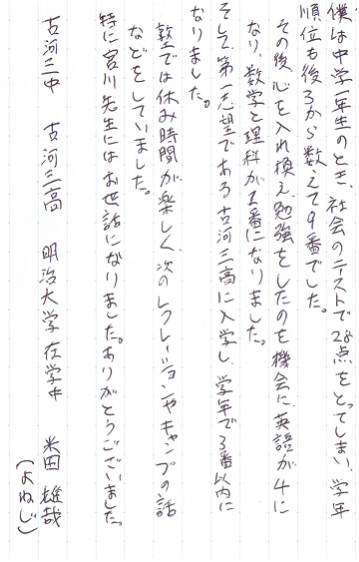 僕は中学一年生のとき、社会のテストで28点をとってしまい、学年
順位も後ろから数えて9番でした。
その後心を入れ換え勉強をしたのを機会に、英語が4に
なり、数学と理科が1番になりました。
そして第一志望である古河三高に入学し、学年で3番以内に
なりました。
塾では休み時間が楽しく、次のレクレーションやキャンプの話
などをしていました。
特に宮川先生にはお世話になりました。ありがとうございました。
古河三中 古河三高 明治大学在学中 米田雄哉
(よねじ)